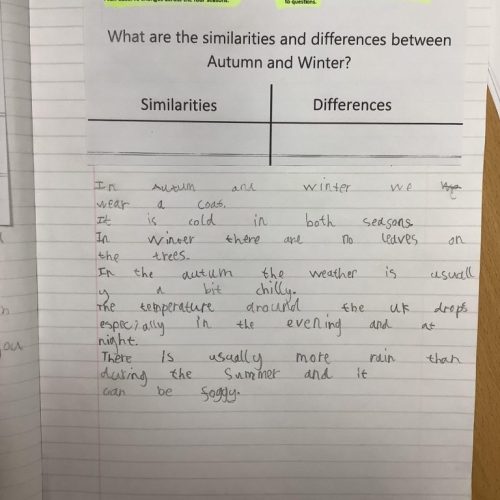 to questions.
What are the similarities and differences between
Autumn and Winter?
Similarities Differences
In Autum and winter we
wear a coat.
It is cold in both seasons.
In winter there are no leaves on
the trees.
In the autum the weather is usuall
y a bit chilly.
The temperature around the uk drops
especially in the evening and at
night.
There is usually more rain than
during the Summer and it
can be foggy.